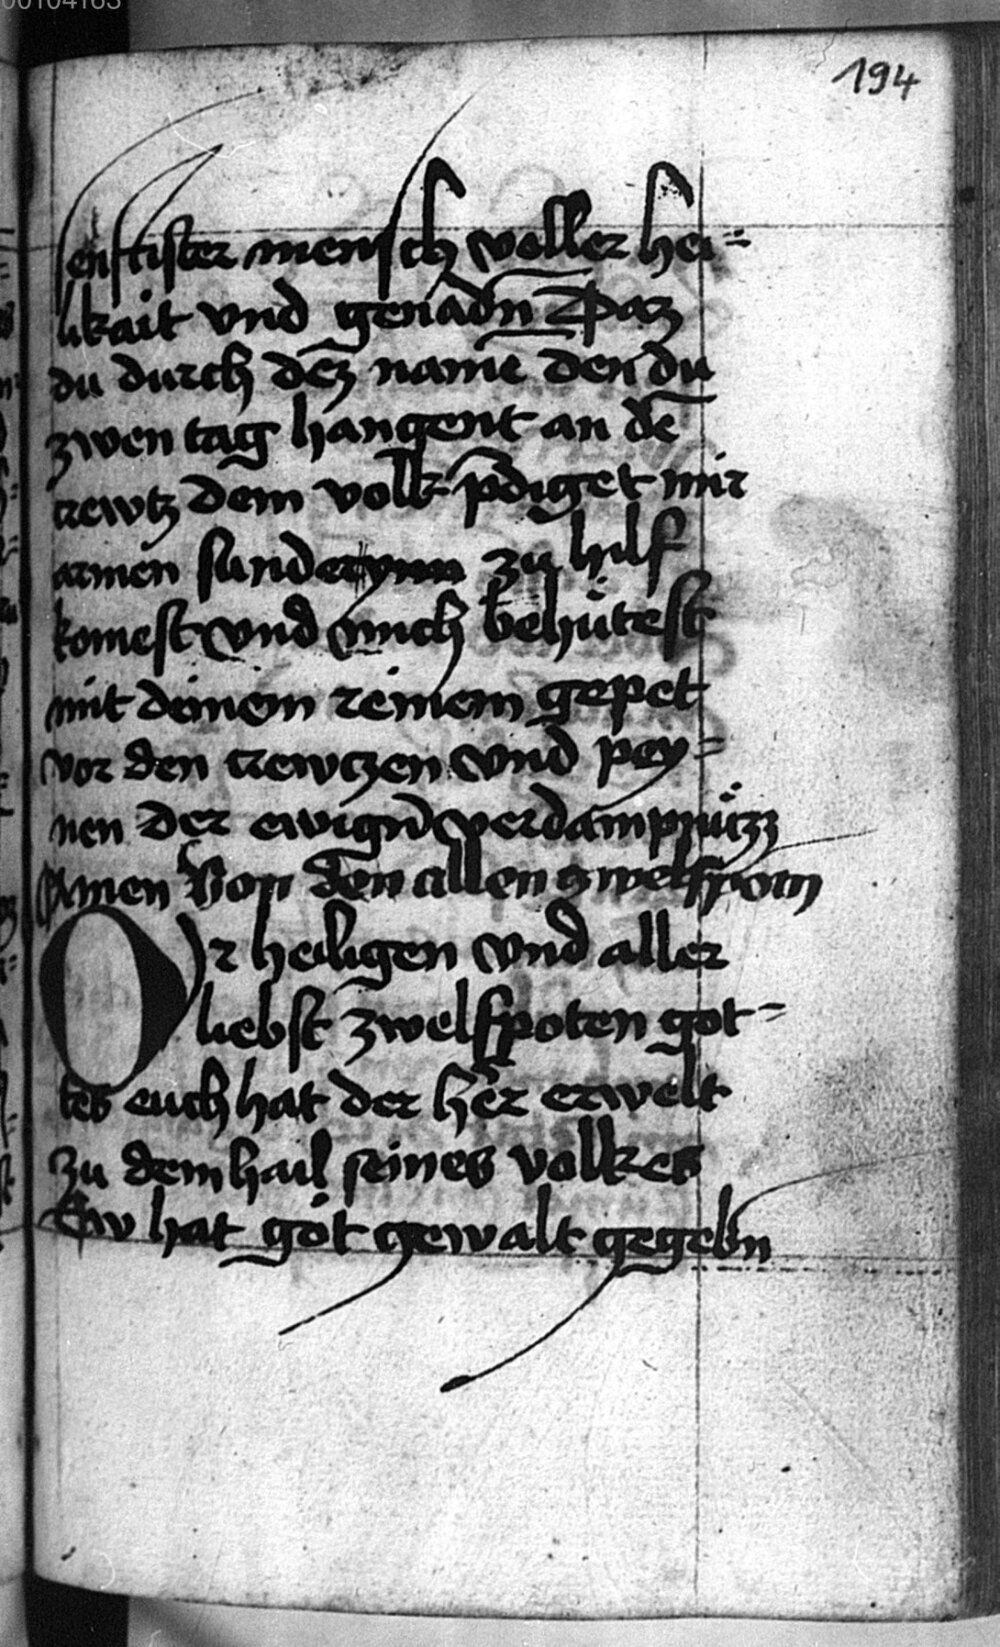 00104163
194
senftister mensch voller hei=
likait vnd genadn̄ Daz
du durch dez̄ name den du
zwen tag hangent an dē
crewtz dem volk p̄diget mir
armen sunderynn zu hilf
komest vnd mich behütest
mit deinem reinem gepet
vor den crewtzen vnd pey=
nen der ewign̄ verdampnüzz
Amen Von den allen zwelfpotn
O Ir heiligen vnd aller
liebst zwelfpoten got=
tes euch hat der her̄ erwelt
zu dem hail seines volkes
Ew hat got gewalt gegebn